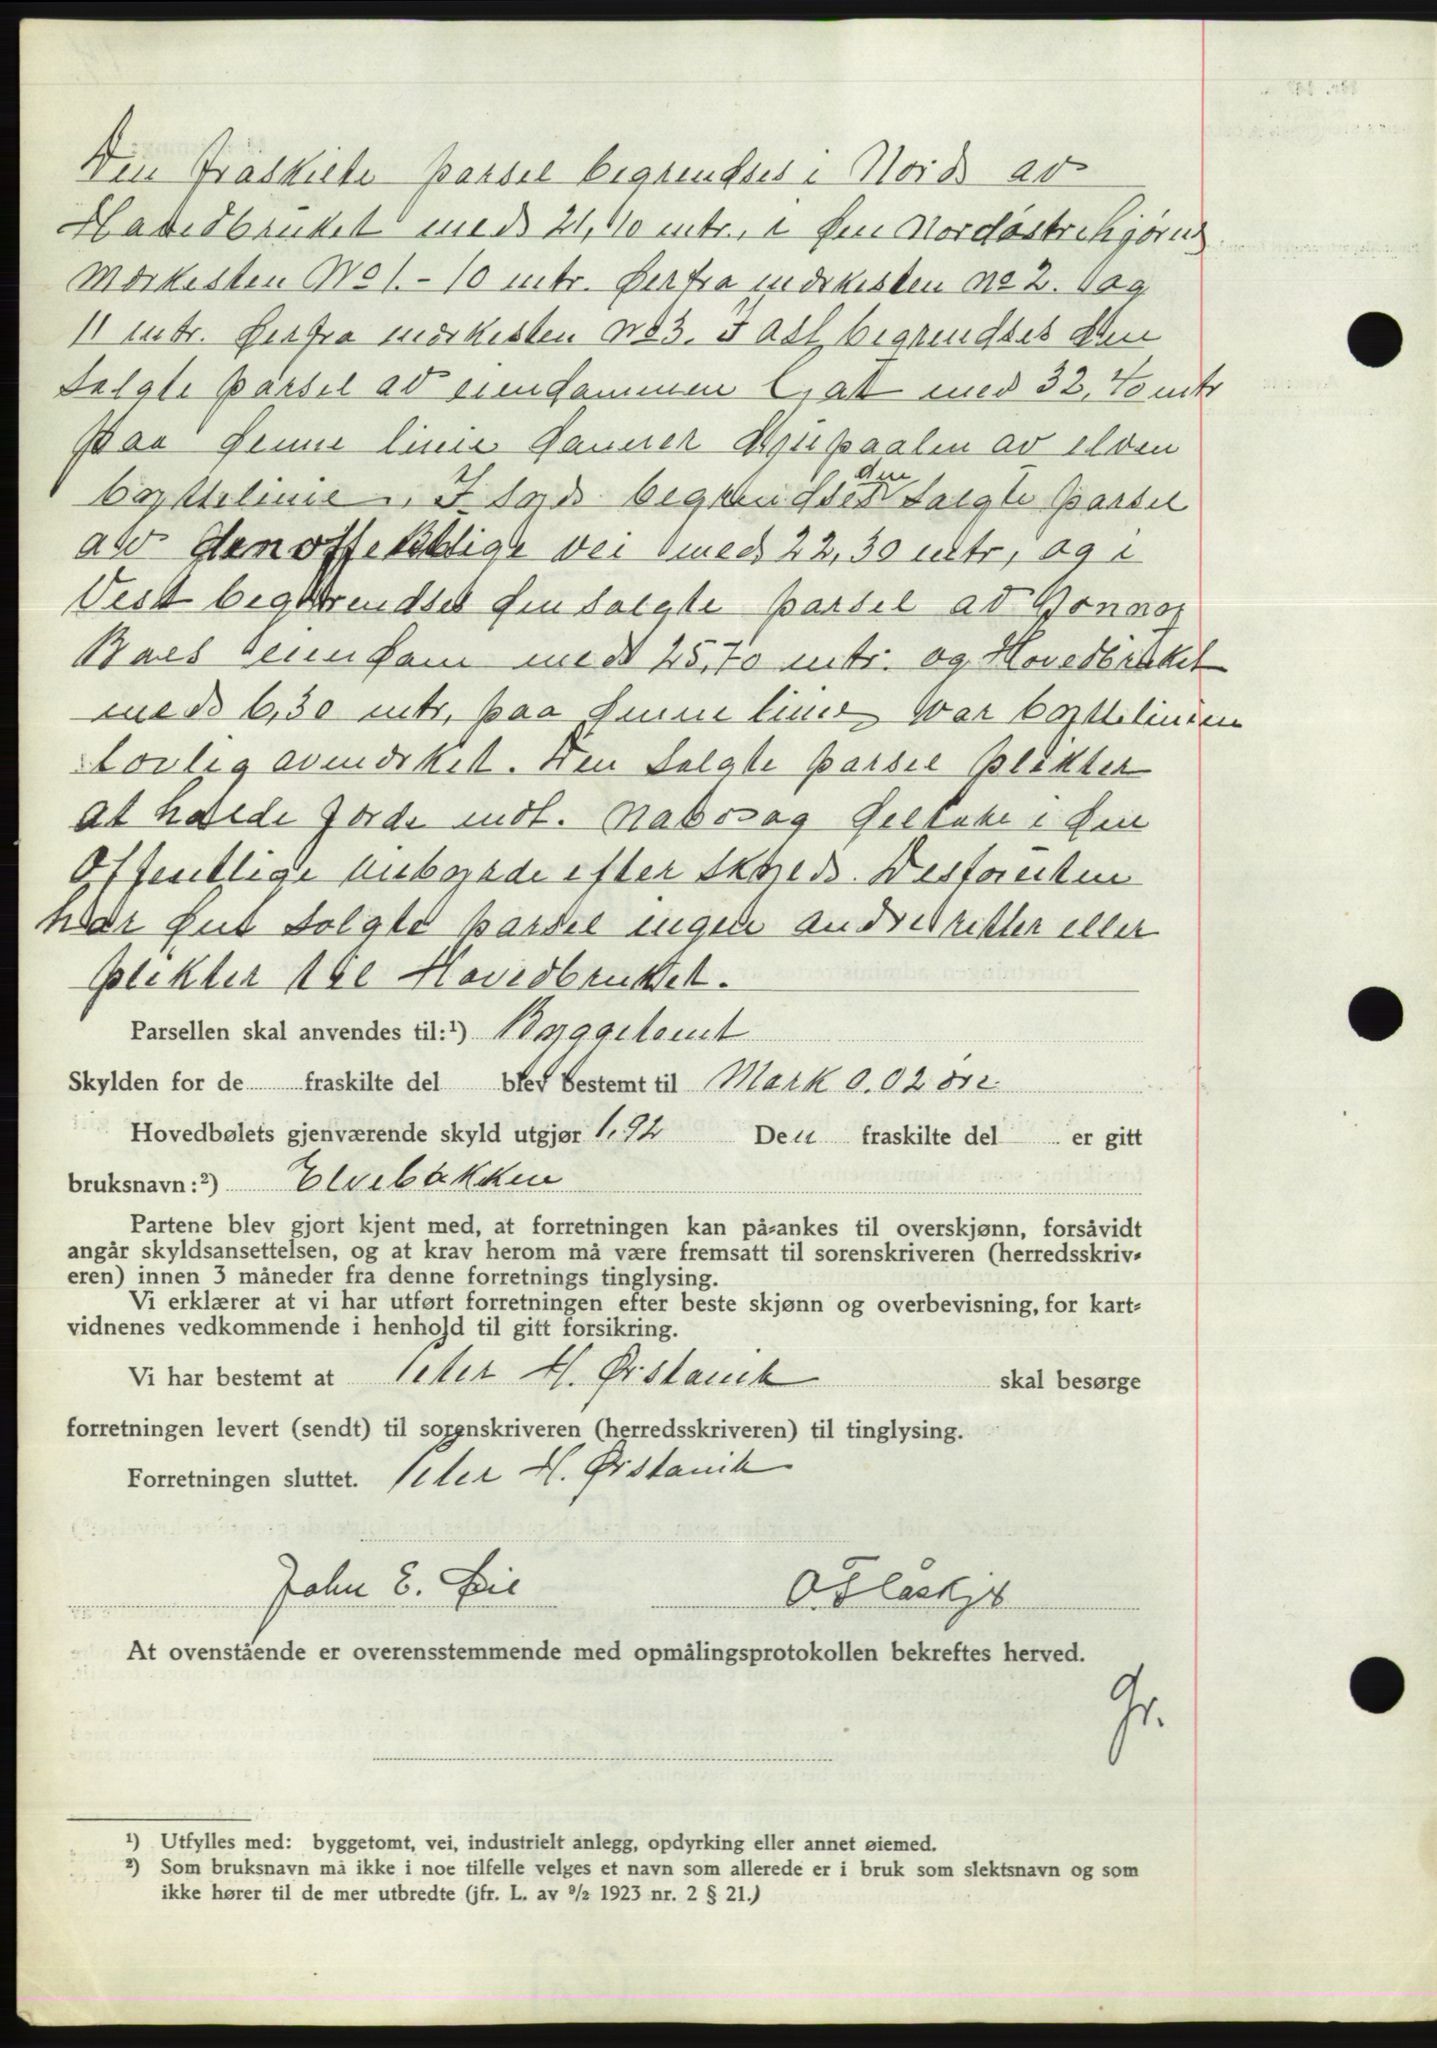 Den fraskilte parsel begrendses i Nord av
Hovedbruket med 21,10 mtr., i den Nordøstre hjørne
Merkesten No 1. - 10 mtr. derfra merkesten no 2. og
11 mtr. derfra merkesten no 3. I Øst begrendses den
solgte parsel av eiendommen Gat med 32,40 mtr
paa denne linie danner djupaalen av elven
byttelinie. I syd begrendses den solgte parsel
av den offentlige vei med 22,30 mtr, og i
Vest begrendses den solgte parsel av
eiendom med 25,70 mtr. og Hovedbruket
med 6,30 mtr, paa denne linie var byttelinien
lovlig avmerket. Den solgte parsel plikter
at holde jorde mot. Nabo og deltake i den
Offentlige veibyrde efter skyld. Desforuten
har den solgte parsel ingen andre retter eller
plikter til Hovedbruket.
Parsellen skal anvendes til:¹) Byggetomt
Skylden for de fraskilte del blev bestemt til Mark 0.02 øre
Hovedbølets gjenværende skyld utgjør 1,92 Den fraskilte del er gitt
bruksnavn:²) Elvebakken
Partene blev gjort kjent med, at forretningen kan på-ankes til overskjønn, forsåvidt
angår skyldsansettelsen, og at krav herom må være fremsatt til sorenskriveren (herredsskriv-
eren) innen 3 måneder fra denne forretnings tinglysing.
Vi erklærer at vi har utført forretningen efter beste skjønn og overbevisning, for kart-
vidnenes vedkommende i henhold til gitt forsikring.
Vi har bestemt at Peter H. Ørstavik skal besørge
forretningen levert (sendt) til sorenskriveren (herredsskriveren) til tinglysing.
Forretningen sluttet. Peter H. Ørstavik
John E. Øie O. Flåskjer
At ovenstående er overensstemmende med opmålingsprotokollen bekreftes herved.
Gr.
¹) Utfylles med: byggetomt, vei, industrielt anlegg, opdyrking eller annet øiemed.
²) Som bruksnavn må ikke i noe tilfelle velges et navn som allerede er i bruk som slektsnavn og som
ikke hører til de mer utbredte (jfr. L. av 9/2 1923 nr. 2 § 21.)